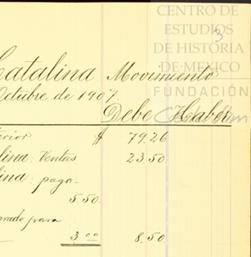 CENTRO DE
ESTUDIOS
DE HISTORIA
DE MEXICO
FUNDACIÓN
3
Catalina Movimiento
Octubre de 1907
Debe Haber
erior $ 79.26
lina Ventas 23.50
lina paga
5.50
para
3.00 8.50